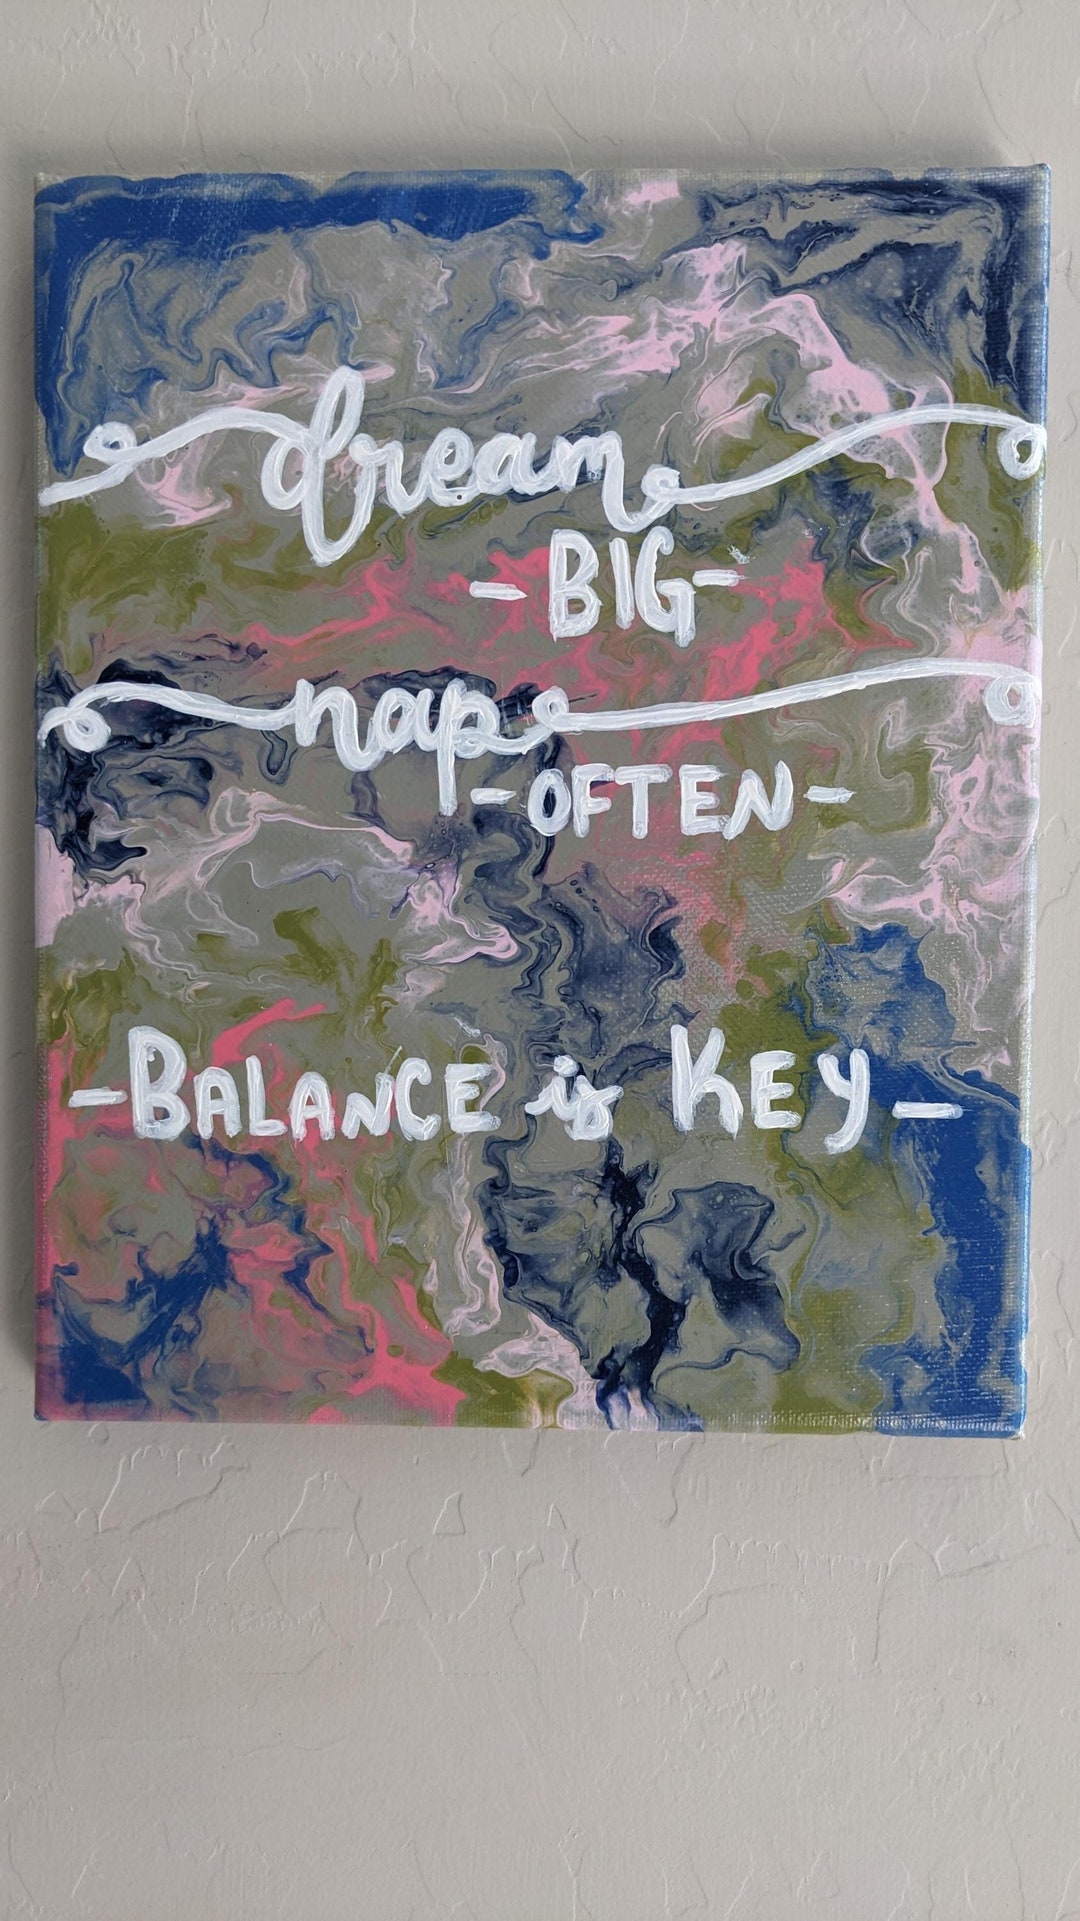 dream
-BIG-
nap
-OFTEN-
-BALANCE is KEY-